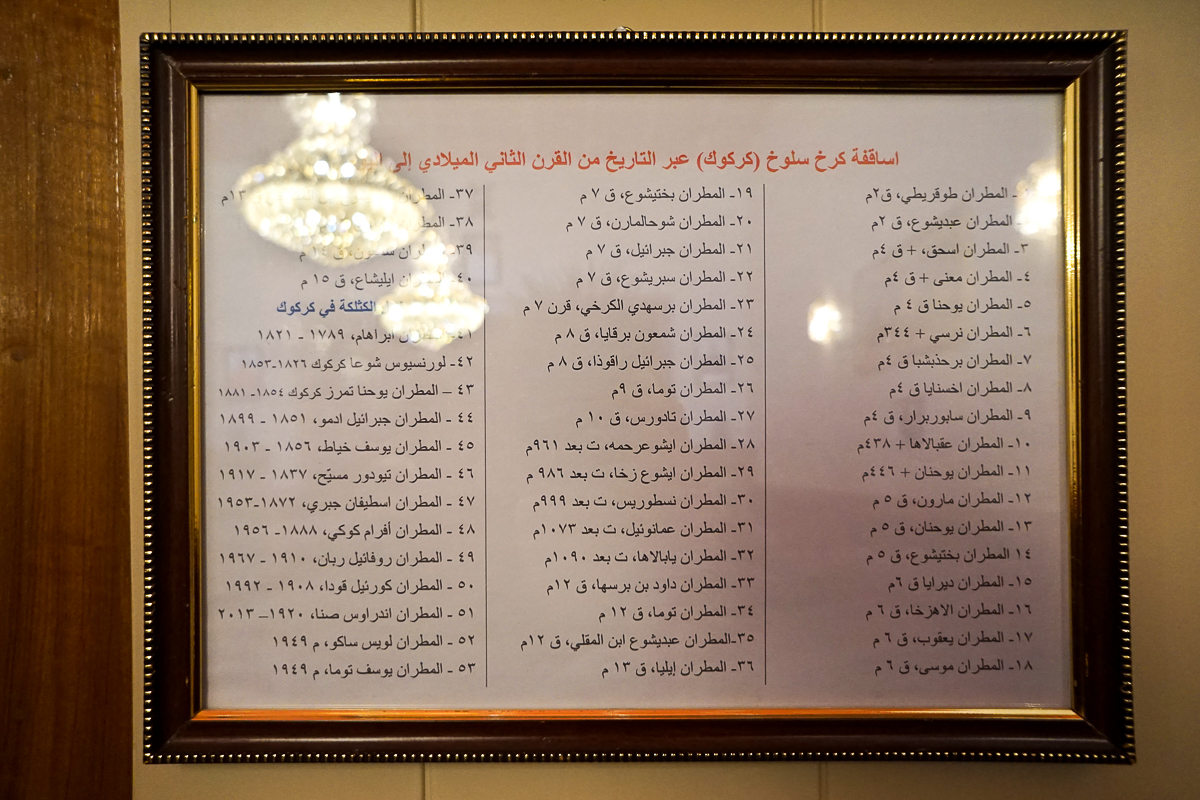 اساقفة كرخ سلوخ (كركوك) عبر التاريخ من القرن الثاني الميلادي إلى
المطران طوقريطي، ق٢م
المطران عبديشوع، ق ٢م
٣- المطران اسحق، + ق ٤م
٤- المطران معنى + ق ٤م
٥- المطران يوحنا ق ٤ م
٦- المطران نرسي + ٣٤٤م
٧- المطران برحذبشبا ق ٤م
٨- المطران اخسنايا ق ٤م
٩- المطران سابوربرار، ق ٤م
١٠- المطران عقبالاها + ٤٣٨م
١١- المطران يوحنان + ٤٤٦م
١٢- المطران مارون، ق ٥ م
١٣- المطران يوحنان، ق ٥ م
١٤ المطران بختيشوع، ق ٥ م
١٥- المطران ديرايا ق ٦م
١٦- المطران الاهزخا، ق ٦ م
١٧- المطران يعقوب، ق ٦ م
١٨- المطران موسى، ق ٦ م
١٩- المطران بختيشوع، ق ٧ م
٢٠- المطران شوحالمارن، ق ٧ م
٢١- المطران جبرائيل، ق ٧ م
٢٢- المطران سبريشوع، ق ٧ م
٢٣- المطران برسهدي الكرخي، قرن ٧ م
٢٤- المطران شمعون برقايا، ق ٨ م
٢٥- المطران جبرائيل راقوذا، ق ٨ م
٢٦- المطران توما، ق ٩م
٢٧- المطران تادورس، ق ١٠ م
٢٨- المطران ايشوعرحمه، ت بعد ٩٦١م
٢٩- المطران ايشوع زخا، ت بعد ٩٨٦ م
٣٠- المطران نسطوريس، ت بعد ٩٩٩م
٣١- المطران عمانوئيل، ت بعد ١٠٧٣م
٣٢- المطران يابالاها، ت بعد ١٠٩٠م
٣٣- المطران داود بن برسها، ق ١٢م
٣٤- المطران توما، ق ١٢ م
٣٥-المطران عبديشوع ابن المقلي، ق ١٢م
٣٦- المطران إيليا، ق ١٣ م
٣٧- المطران
٣٨-
٣٩-
٤٠- المطران ايليشاع، ق ١٥ م
الكثلكة في كركوك
٤١- المطران ابراهام، ١٧٨٩ - ١٨٢١
٤٢- لورنسيوس شوعا كركوك ١٨٢٦-١٨٥٣
٤٣ – المطران يوحنا تمرز كركوك ١٨٥٤- ١٨٨١
٤٤ - المطران جبرائيل ادمو، ١٨٥١ - ١٨٩٩
٤٥ - المطران يوسف خياط، ١٨٥٦ - ١٩٠٣
٤٦ - المطران تيودور مسيّح، ١٨٣٧ - ١٩١٧
٤٧ - المطران اسطيفان جبري، ١٨٧٢-١٩٥٣
٤٨ - المطران أفرام كوكي، ١٨٨٨- ١٩٥٦
٤٩ - المطران روفائيل ربان، ١٩١٠ - ١٩٦٧
٥٠ - المطران كورئيل قودا، ١٩٠٨ - ١٩٩٢
٥١ - المطران اندراوس صنا، ١٩٢٠– ٢٠١٣
٥٢ - المطران لويس ساكو، م ١٩٤٩
٥٣ - المطران يوسف توما، م ١٩٤٩